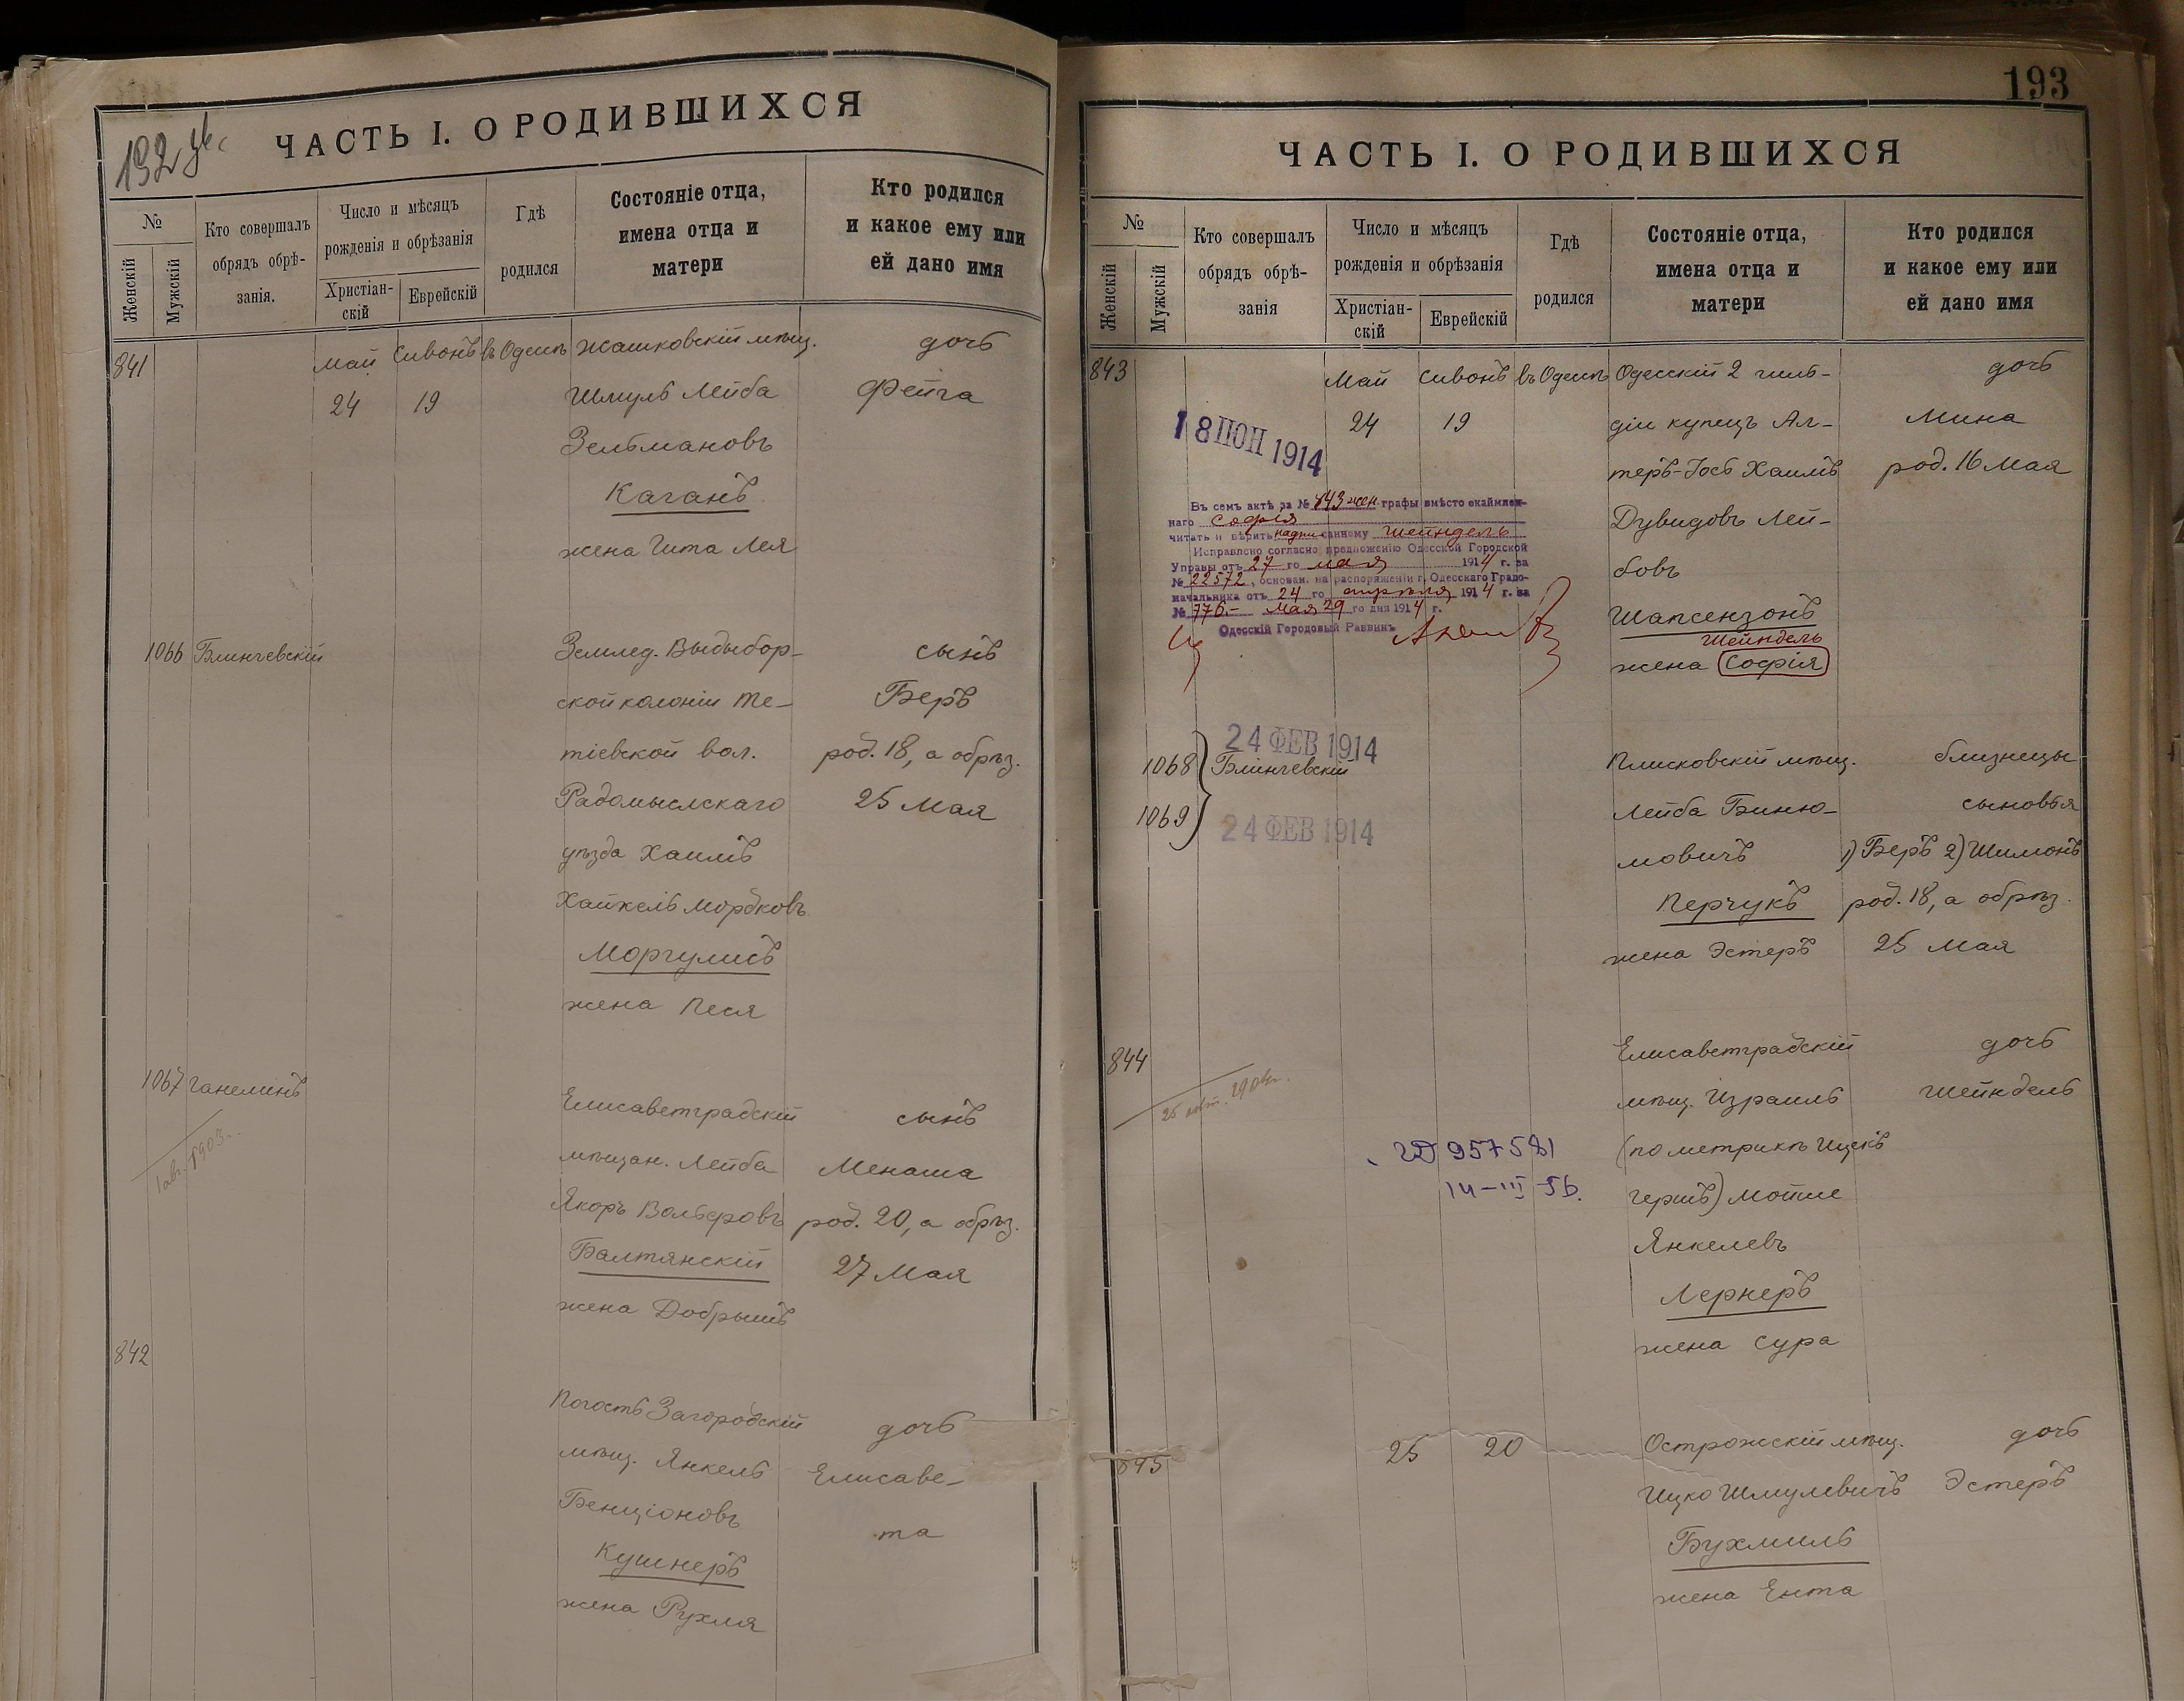 ЧАСТЬ I. О РОДИВШИХСЯ
№
Женскій
Мужскій
Кто совершалъ
обрядъ обрѣ-
занія.
Число и мѣсяцъ
рожденія и обрѣзанія
Христіан-
скій
Еврейскій
Гдѣ
родился
Состояніе отца,
имена отца и
матери
Кто родился
и какое ему или
ей дано имя
841
Май Сивонъ въ Одессѣ Жашковскій мѣщ. дочь
24 19 Шмуль Лейба Фейга
Зельмановъ
Каганъ
жена Гита Лея
1066 Блинчевскій Землед. Выдыбор- сынъ
ской колоніи Те- Беръ
тіевской вол. род. 18, а обрѣз.
Радомыслскаго 25 Мая
уѣзда Хаимъ
Хайкель Мордковъ
Моргулисъ
жена Песя
1067 Ганелинъ Елисаветградскій сынъ
мѣщан. Лейба Менаша
1 авг. 1903 г. Якоръ Вольфовъ род. 20, а обрѣз.
Балтянскій 27 Мая
жена Добрышъ
842
Погостъ Загородскій дочь
мѣщ. Янкель Елисаве-
Бенціоновъ та
Кушнеръ
жена Рухля
193
ЧАСТЬ I. О РОДИВШИХСЯ
№
Женскій
Мужскій
Кто совершалъ
обрядъ обрѣ-
занія
Число и мѣсяцъ
рожденія и обрѣзанія
Христіан-
скій
Еврейскій
Гдѣ
родился
Состояніе отца,
имена отца и
матери
Кто родился
и какое ему или
ей дано имя
843 Май Сивонъ въ Одессѣ Одесскій 2 гиль- дочь
24 19 діи купецъ Ал- Мина
теръ-Іось Хаимъ род. 16 Мая
Дувидовъ Лей-
бовъ
Шапсензонъ
Шейндель
жена София
18 ІЮН 1914
Въ семъ актѣ за № 843 жен. графы вмѣсто окаймлен-
наго Софія
читать и вѣрить надписанному Шейндель
Исправлено согласно предложенію Одесской Городской
Управы отъ 27 го мая 1914 г. за
№ 22572, основан. на распоряженіи г. Одесскаго Градо-
начальника отъ 24 го апрѣля 1914 г. за
№ 776.- Мая 29 го дня 1914 г.
Одесскій Городовый Раввинъ
24 ФЕВ 1914
1068 Блинчевскій Плисковскій мѣщ. близнецы
1069 Лейба Биню- сыновья
24 ФЕВ 1914
мовичъ 1) Беръ 2) Шимонъ
Перчукъ род. 18, а обрѣз.
жена Эстеръ 25 Мая
844 Елисаветградскій дочь
мѣщ. Израиль Шейндель
(по метрикѣ Ицекъ
957581
14-III 56. Гершъ) Мотие
Янкелевъ
Лернеръ
жена Сура
845 25 20 Острожскій мѣщ. дочь
Ицко Шмулевичъ Эстеръ
Бухмиль
жена Ента